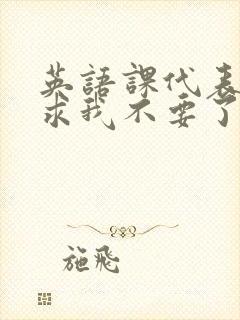 英語課代表
求我不要了
施飛